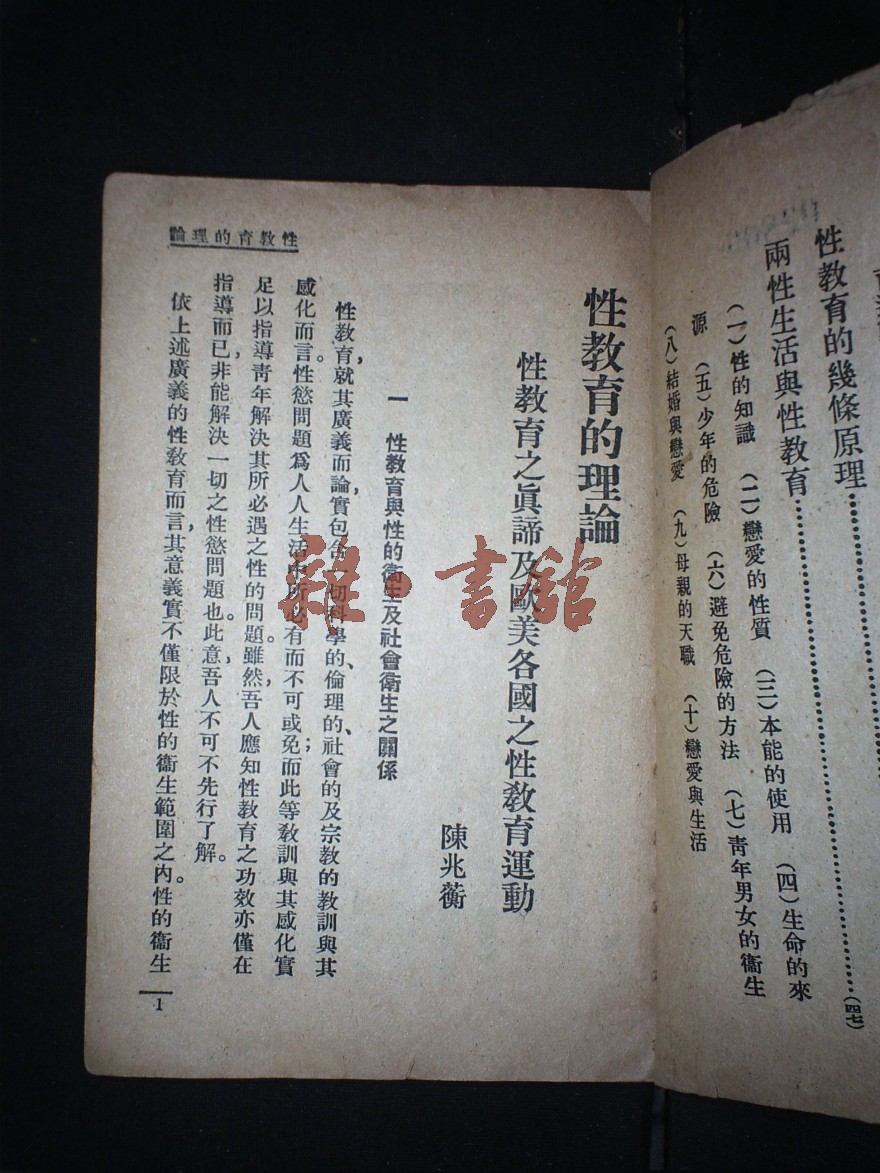 性教育的幾條原理……………………(四七)
兩性生活與性教育……………………
(一)性的知識 (二)戀愛的性質 (三)本能的使用 (四)生命的來
源 (五)少年的危險 (六)避免危險的方法 (七)靑年男女的衞生
(八)結婚與戀愛 (九)母親的天職 (十)戀愛與生活
性教育的理論
性教育的理論
性教育之眞諦及歐美各國之性教育運動
陳兆蘅
一 性教育與性的衞生及社會衞生之關係
性教育,就其廣義而論,實包含一切科學的、倫理的、社會的及宗教的教訓與其
感化而言。性慾問題爲人人生活中所必有而不可或免;而此等教訓與其感化實
足以指導靑年解決其所必遇之性的問題。雖然,吾人應知性教育之功效亦僅在
指導而已,非能解決一切之性慾問題也。此意,吾人不可不先行了解。
依上述廣義的性教育而言,其意義實不僅限於性的衞生範圍之內。性的衞生
1
雜·書館